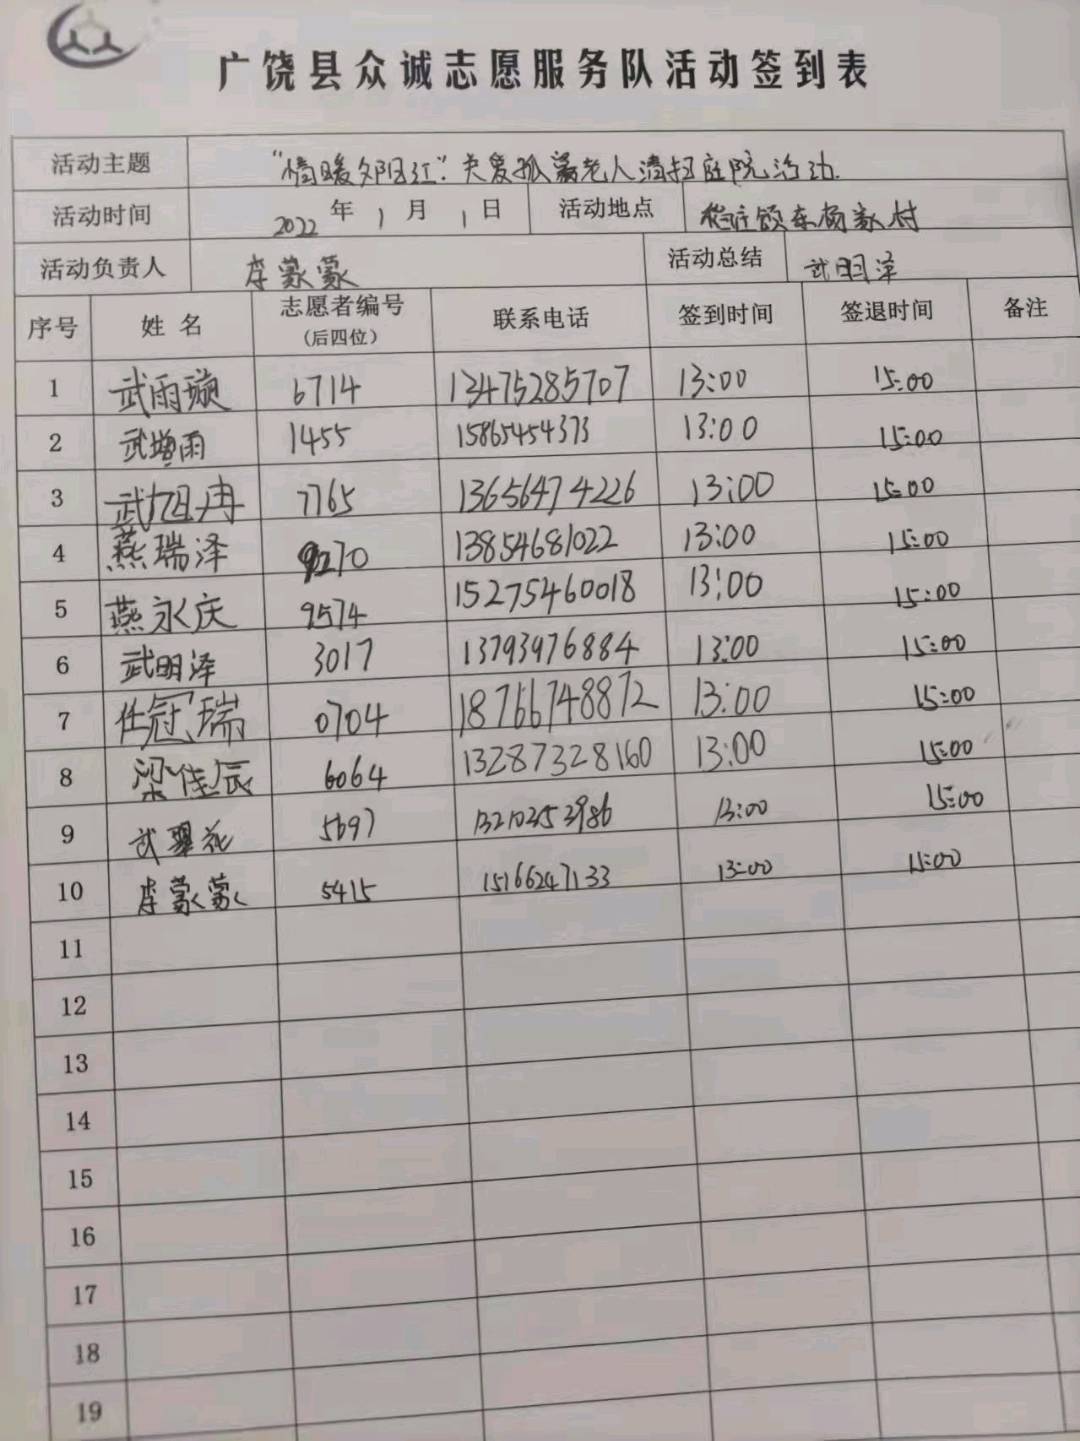 广饶县众诚志愿服务队活动签到表
活动主题 "情暖夕阳红"关爱孤寡老人清扫庭院活动.
活动时间 2022 年 1 月 1 日 活动地点 稻庄镇东杨家村
活动负责人 李蒙蒙 活动总结 武明泽
序号 姓名 志愿者编号 (后四位) 联系电话 签到时间 签退时间 备注
1 武雨璇 6714 13475285707 13:00 15:00
2 武增雨 1455 15865454373 13:00 15:00
3 武旭冉 7765 13656474226 13:00 15:00
4 燕瑞泽 9270 13854681022 13:00 15:00
5 燕永庆 9574 15275460018 13:00 15:00
6 武明泽 3017 13793976884 13:00 15:00
7 任冠瑞 0704 18766748872 13:00 15:00
8 梁佳辰 6064 13287328160 13:00 15:00
9 武翠花 5697 13210353986 13:00 15:00
10 李蒙蒙 5415 15166247133 13:00 15:00
11
12
13
14
15
16
17
18
19